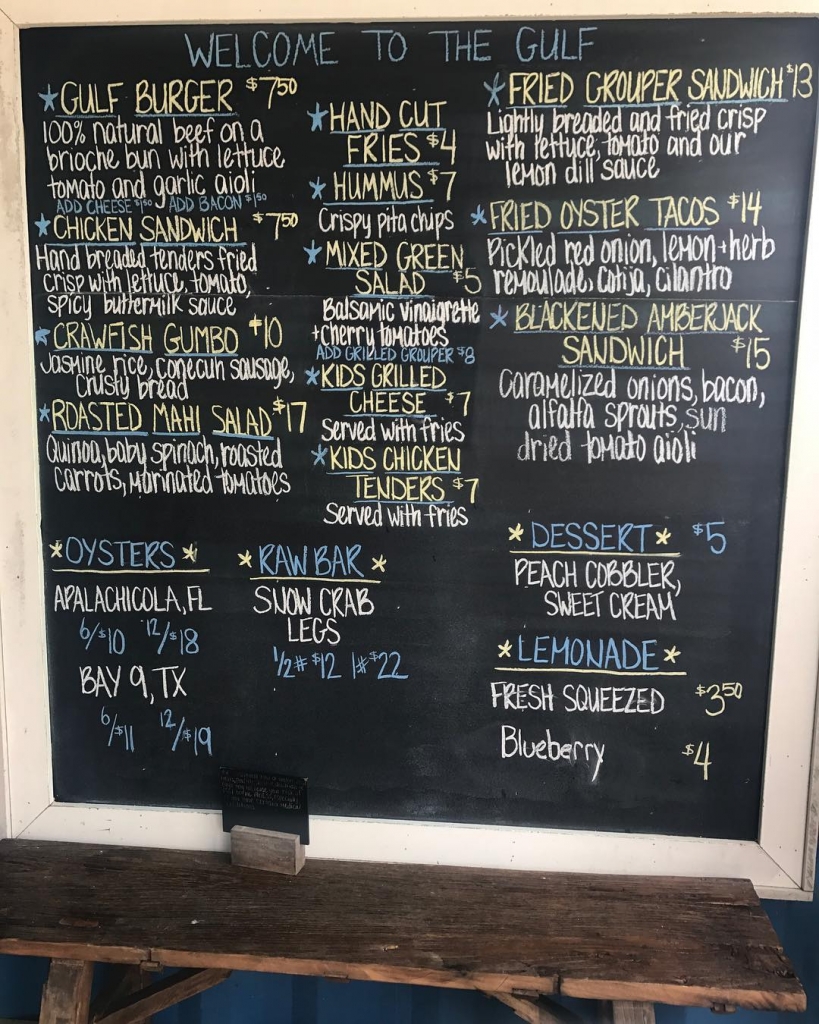 WELCOME TO THE GULF
GULF BURGER $7.50
100% natural beef on a
brioche bun with lettuce,
tomato and garlic aioli
ADD CHEESE $1.50 ADD BACON $1.50
CHICKEN SANDWICH $7.50
Hand breaded tenders fried
crisp with lettuce, tomato,
spicy buttermilk sauce
CRAWFISH GUMBO $10
Jasmine rice, conecuh sausage,
crusty bread
ROASTED MAHI SALAD $17
Quinoa, baby spinach, roasted
carrots, marinated tomatoes
HAND CUT
FRIES $4
HUMMUS $7
Crispy pita chips
MIXED GREEN
SALAD $5
Balsamic vinaigrette
+ cherry tomatoes
ADD GRILLED GROUPER $8
KIDS GRILLED
CHEESE $7
Served with fries
KIDS CHICKEN
TENDERS $7
Served with fries
FRIED GROUPER SANDWICH $13
Lightly breaded and fried crisp
with lettuce, tomato and our
lemon dill sauce
FRIED OYSTER TACOS $14
Pickled red onion, lemon + herb
remoulade, cotija, cilantro
BLACKENED AMBERJACK
SANDWICH $15
Caramelized onions, bacon,
alfalfa sprouts, sun
dried tomato aioli
*OYSTERS*
APALACHICOLA, FL
6/$10 12/$18
BAY 9, TX
6/$11 12/$19
*RAW BAR*
SNOW CRAB
LEGS
1/2# $12 1# $22
*DESSERT* $5
PEACH COBBLER,
SWEET CREAM
*LEMONADE*
FRESH SQUEEZED $3.50
Blueberry $4